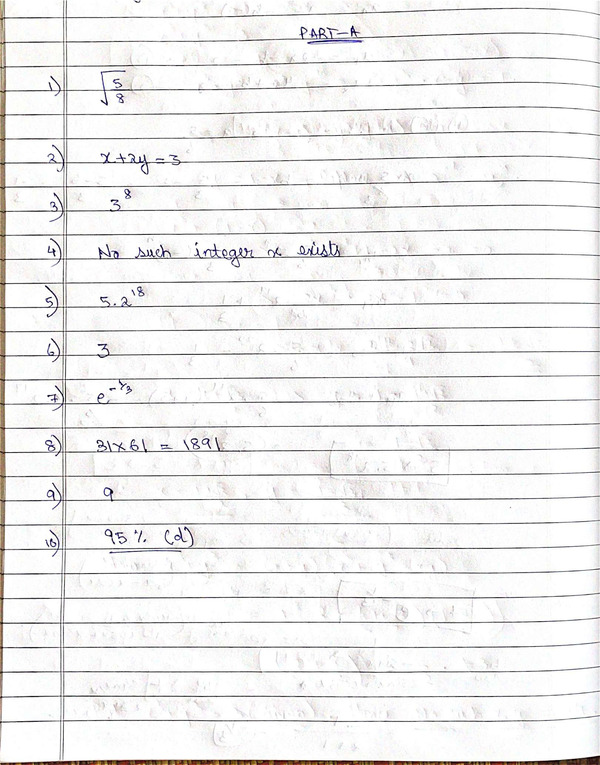 PART-A
1) √5/8
2) x+2y=3
3) 3^8
4) No such integer x exists
5) 5.2^18
6) 3
7) e^-1/3
8) 31x61 = 1891
9) 9
10) 95% (d)